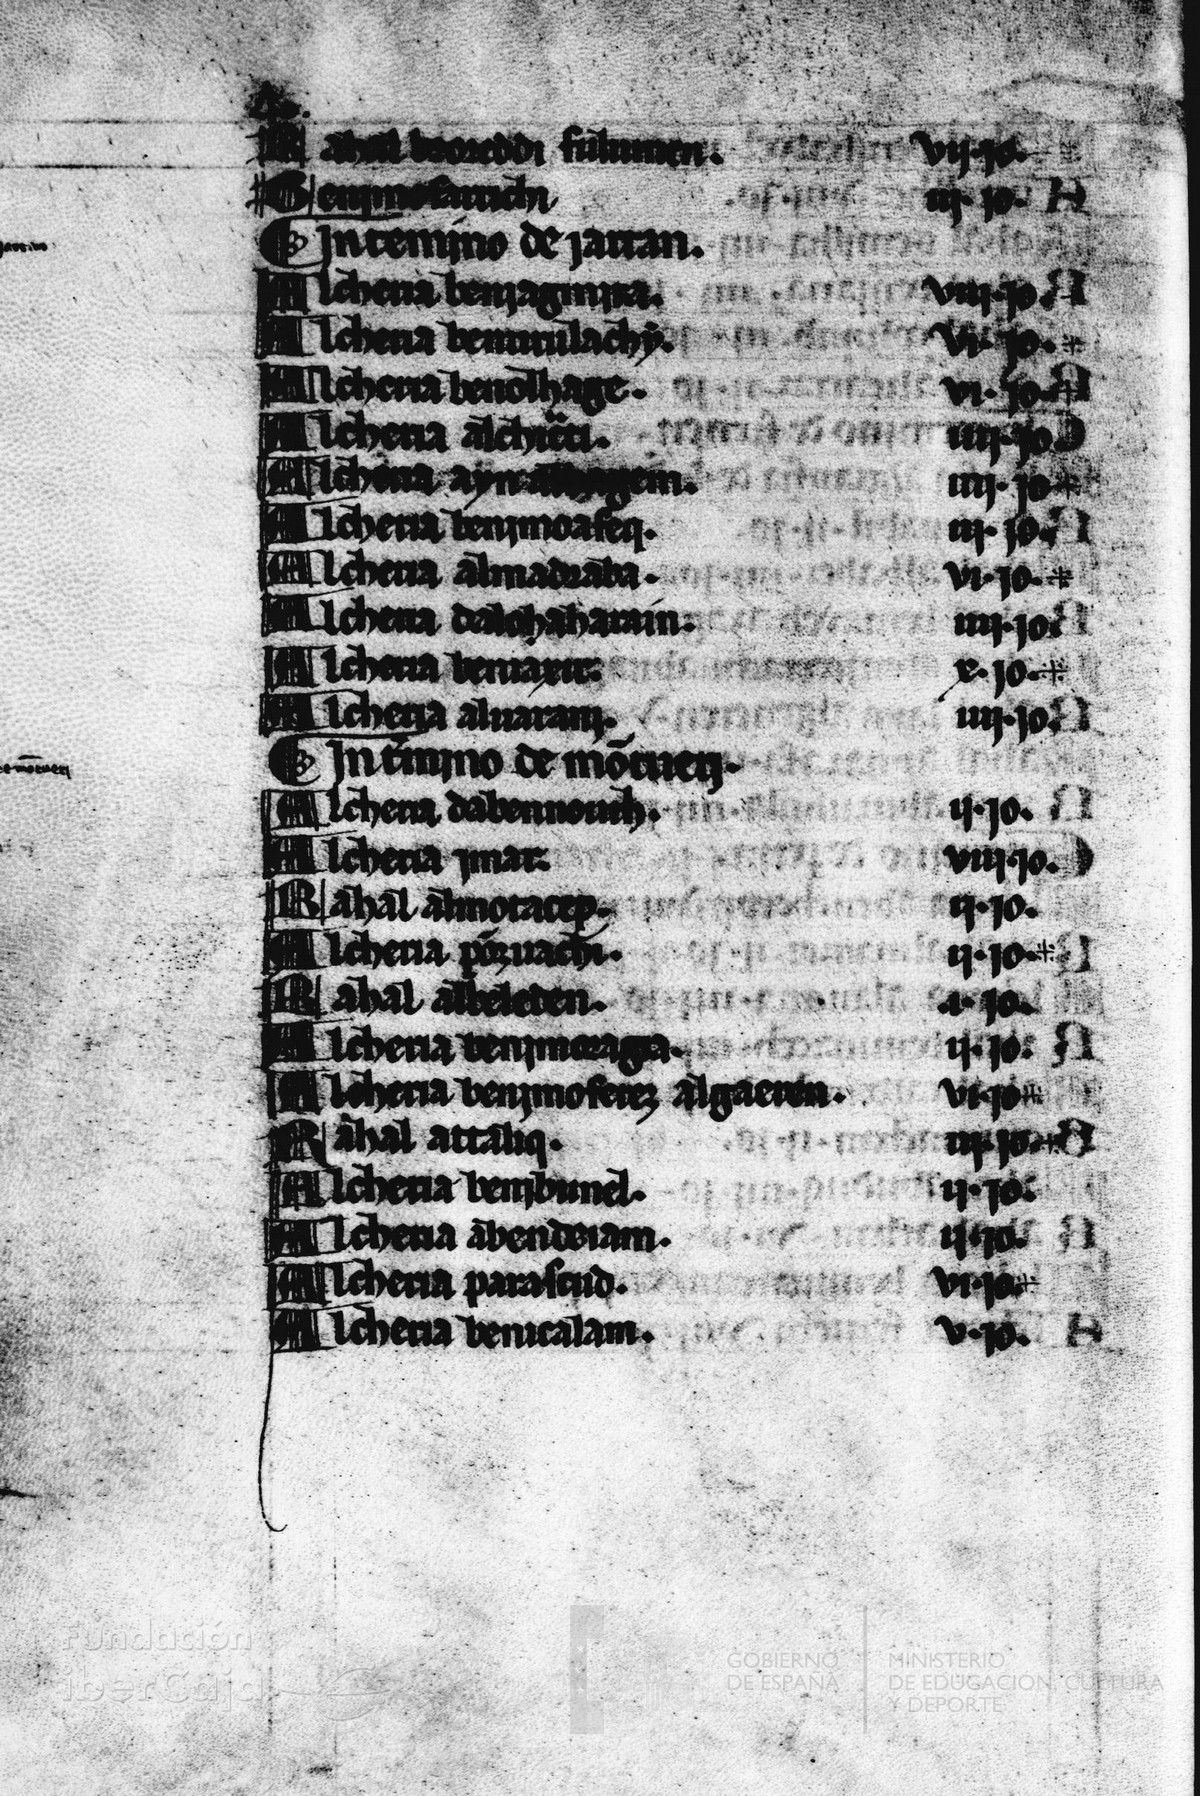 Rahal beoreddi fulumen. vij. jo.
Benimofarrichi iij. jo.
In termino de jartan.
Alcheria beniagmira. viiij. jo.
Alcheria benimulachi. vi. jo.
Alcheria benolhage. vi. jo.
Alcheria alchiteti. iiij. jo
Alcheria ayn iiij. jo
Alcheria benimoafeq. iij. jo.
Alcheria almadraba. vi. jo.
Alcheria dalchaharain. iiij. jo.
Alcheria beniaxir. x. jo.
Alcheria aluarani. iiij. jo.
In tmino de mõtueri.
Alcheria dabennouh. ij. jo.
Alcheria ymar. viiij. jo.
Rahal almotacep. ij. jo.
Alcheria porxuachi. ij. jo.
Rahal albeleden. .i. jo.
Alcheria benimoragia. ij. jo.
Alcheria benimoferez algaeren. vi. jo
Rahal attaliq. iij. jo.
Alcheria benibunel. ij. jo.
Alcheria abenderam. ij. jo.
Alcheria parascud. vi. jo.
Alcheria benicalam. v. jo.
Fundación
iberCaja
GOBIERNO
DE ESPAÑA
MINISTERIO
DE EDUCACIÓN, CULTURA
Y DEPORTE